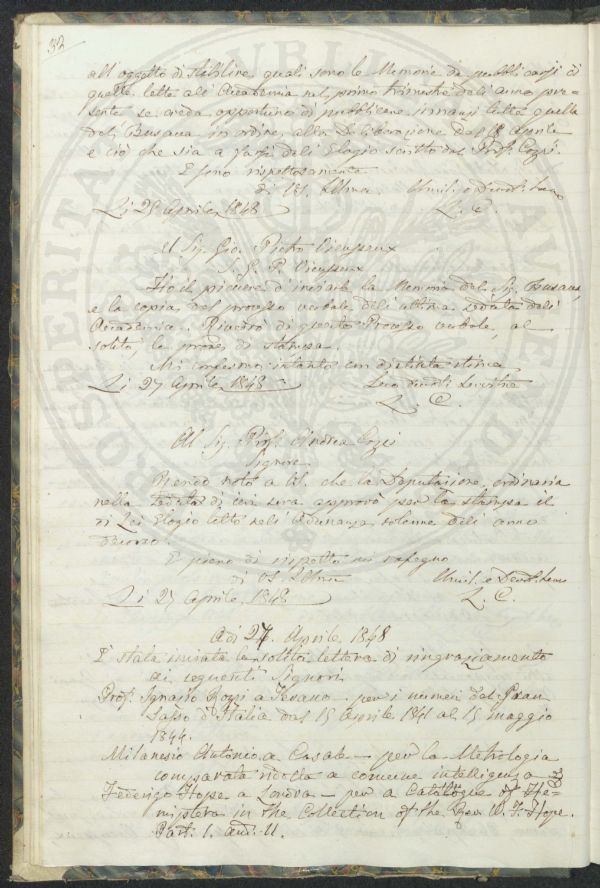 32
all'oggetto di stabilire quali sono le Memorie da pubblicarsi di
quelle lette all'Accademia nel primo trimestre dell'anno pre=
sente se creda opportuno di pubblicare innanzi tutto quella
del Busacca in ordine alla Deliberazione del 18 Aprile
e ciò che sia a farsi dell'Elogio scritto dal Prof. Cozzi.
E sono rispettosamente
di VS. Ill.ma Umil. e Devot. Servo
Li 25 Aprile 1848 L. C.
Al Sig. Gio. Pietro Vieusseux
S. G. P. Vieusseux
Ho il piacere d'inviarle la Memoria del Sig. Busacca,
e la copia del processo verbale dell'ultima seduta dell'
Accademia. Rivedrò di questo Processo verbale, al
solito, le prove di stampa.
Mi confermo intanto con distinta stima
Li 27 Aprile 1848 Suo
L. C.
Al Sig. Prof. Andrea Cozzi
Signore
Rendo noto a VS. che la Deputazione ordinaria
nella seduta di ieri sera approvò per la stampa il
di Lei Elogio letto nell'Adunanza solenne dell'anno
decorso.
E pieno di rispetto mi rassegno
di VS. Ill.ma Umil. e Devot. Servo
Li 27 Aprile 1848 L. C.
Adi 27. Aprile 1848
È stata inviata la solita lettera di ringraziamento
ai seguenti Signori
Prof. Ignazio Rozzi a Teramo — per i numeri del Gran
Sasso d'Italia dal 15 Aprile 1841 al 15 maggio
1844.
Milanesio Antonio a Casale — per la Metrologia
comparata ridotta a comune intelligenza
Federigo Hope a Londra — per a Catalogue of He=
miptera in the Collection of the Rev. W. F. Hope.
Part. I. and. II.